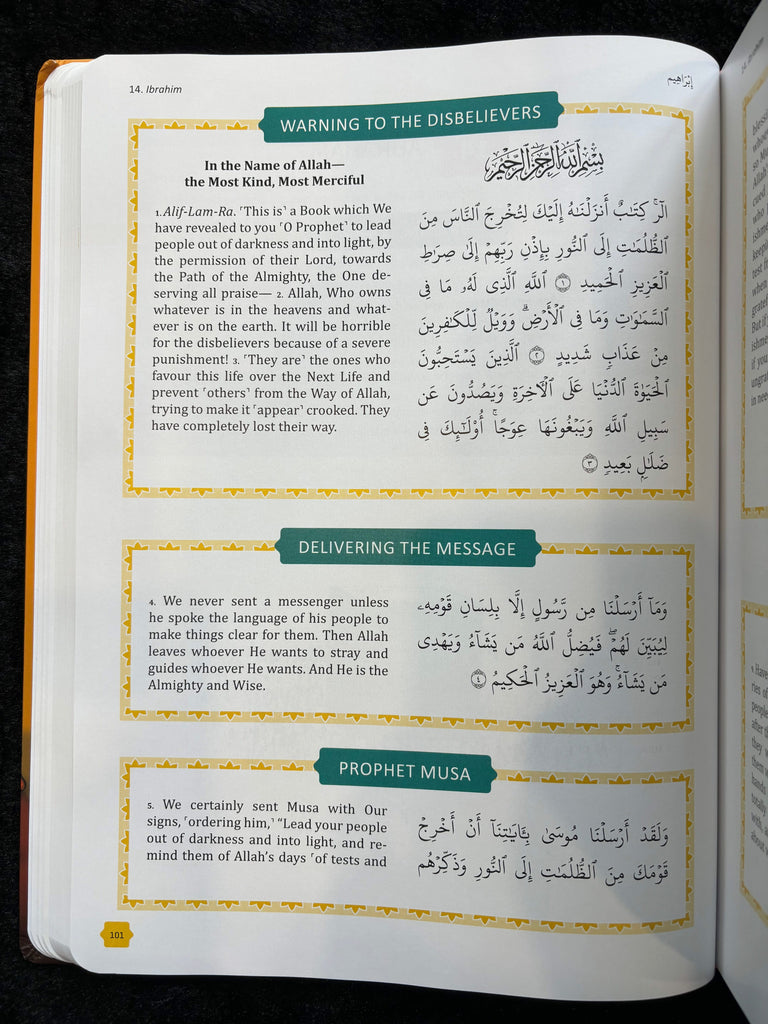 14. Ibrahim
إبْرَاهِيم
WARNING TO THE DISBELIEVERS
In the Name of Allah—
the Most Kind, Most Merciful
1. Alif-Lam-Ra. ˹This is˺ a Book which We
have revealed to you ˹O Prophet˺ to lead
people out of darkness and into light, by
the permission of their Lord, towards
the Path of the Almighty, the One de-
serving all praise— 2. Allah, Who owns
whatever is in the heavens and what-
ever is on the earth. It will be horrible
for the disbelievers because of a severe
punishment! 3. ˹They are˺ the ones who
favour this life over the Next Life and
prevent ˹others˺ from the Way of Allah,
trying to make it ˹appear˺ crooked. They
have completely lost their way.
بِسْمِ ٱللَّهِ ٱلرَّحْمَٰنِ ٱلرَّحِيمِ
الٓرۚ كِتَٰبٌ أَنزَلْنَٰهُ إِلَيْكَ لِتُخْرِجَ ٱلنَّاسَ مِنَ
ٱلظُّلُمَٰتِ إِلَى ٱلنُّورِ بِإِذْنِ رَبِّهِمْ إِلَىٰ صِرَٰطِ
ٱلْعَزِيزِ ٱلْحَمِيدِ ١ ٱللَّهِ ٱلَّذِى لَهُۥ مَا فِى
ٱلسَّمَٰوَٰتِ وَمَا فِى ٱلْأَرْضِۗ وَوَيْلٌ لِّلْكَٰفِرِينَ
مِنْ عَذَابٍ شَدِيدٍ ٢ ٱلَّذِينَ يَسْتَحِبُّونَ
ٱلْحَيَوٰةَ ٱلدُّنْيَا عَلَى ٱلْـَٔاخِرَةِ وَيَصُدُّونَ عَن
سَبِيلِ ٱللَّهِ وَيَبْغُونَهَا عِوَجًاۚ أُو۟لَٰٓئِكَ فِى
ضَلَٰلٍۭ بَعِيدٍ ٣
DELIVERING THE MESSAGE
4. We never sent a messenger unless
he spoke the language of his people to
make things clear for them. Then Allah
leaves whoever He wants to stray and
guides whoever He wants. And He is the
Almighty and Wise.
وَمَآ أَرْسَلْنَا مِن رَّسُولٍ إِلَّا بِلِسَانِ قَوْمِهِۦ
لِيُبَيِّنَ لَهُمْۖ فَيُضِلُّ ٱللَّهُ مَن يَشَآءُ وَيَهْدِى
مَن يَشَآءُۚ وَهُوَ ٱلْعَزِيزُ ٱلْحَكِيمُ ٤
PROPHET MUSA
5. We certainly sent Musa with Our
signs, ˹ordering him,˺ “Lead your people
out of darkness and into light, and re-
mind them of Allah’s days ˹of tests and
وَلَقَدْ أَرْسَلْنَا مُوسَىٰ بِـَٔايَٰتِنَآ أَنْ أَخْرِجْ
قَوْمَكَ مِنَ ٱلظُّلُمَٰتِ إِلَى ٱلنُّورِ وَذَكِّرْهُم
101